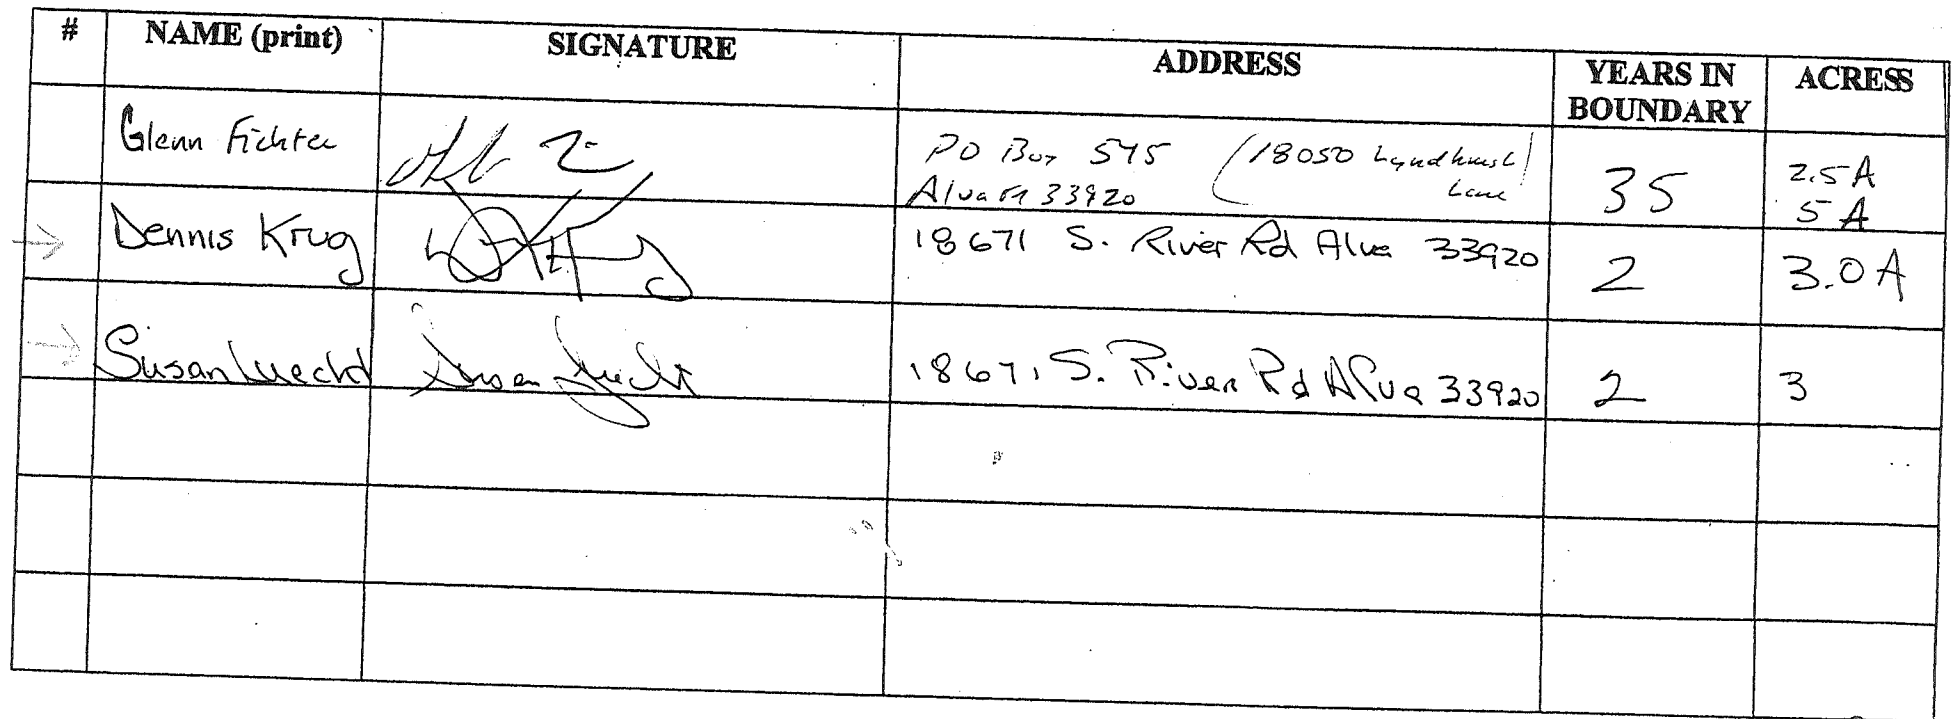 # NAME (print) SIGNATURE ADDRESS YEARS IN BOUNDARY ACRESS
Glenn Fichter PO Box 545 (18050 Lyndhurst Lane) 35 2.5 A
Alva Fl 33920 5 A
→ Dennis Krug 18671 S. River Rd Alva 33920 2 3.0 A
→ Susan 18671 S. River Rd Alva 33920 2 3